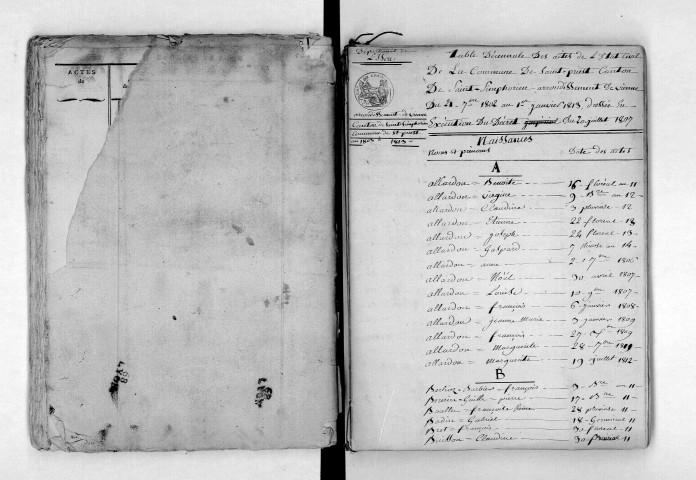 ACTES
de
Département de
L'Isère
arrondissement de Vienne
Canton de Saint Simphorien
Commune de St priest
an 1803 à 1813
Table Décennale Des actes de L'Etat Civil
De La Commune De Saint-priest Canton
De Saint-Simphorien arrondissement de Vienne
Du 21 7bre 1802 au 1er janvier 1813, dressée en
Exécution Du Décret Du 20 juillet 1807
Naissances
Noms et prénoms Date des actes
A
allardon = Benoite 16 floréal an 11
allardon = Virginie 9 Bre an 12
allardon = Claudine 3 pluviose 12
allardon = Etienne 22 floreal 13
allardon = Joseph 24 floreal 13
allardon = Gaspard 7 nivose an 14
allardon = anne 2 7bre 1806
allardon = Noël 30 avril 1807
allardon = Louise 10 9bre 1807
allardon = françois 6 janvier 1808
allardon = jeanne Marie 3 janvier 1809
allardon = françois 27 1809
allardon = Marguerite 28 7bre 1811
allardon = Marguerite 19 juillet 1812
B
Barbier = françois 9 Bre an 11
pierre 17 Bre 11
françoise 28 pluviose 11
Badin = Gabriel 18 Germinal 11
Bret = françois 30 floreal 11
Buisson = Claudine 30 prairial 11